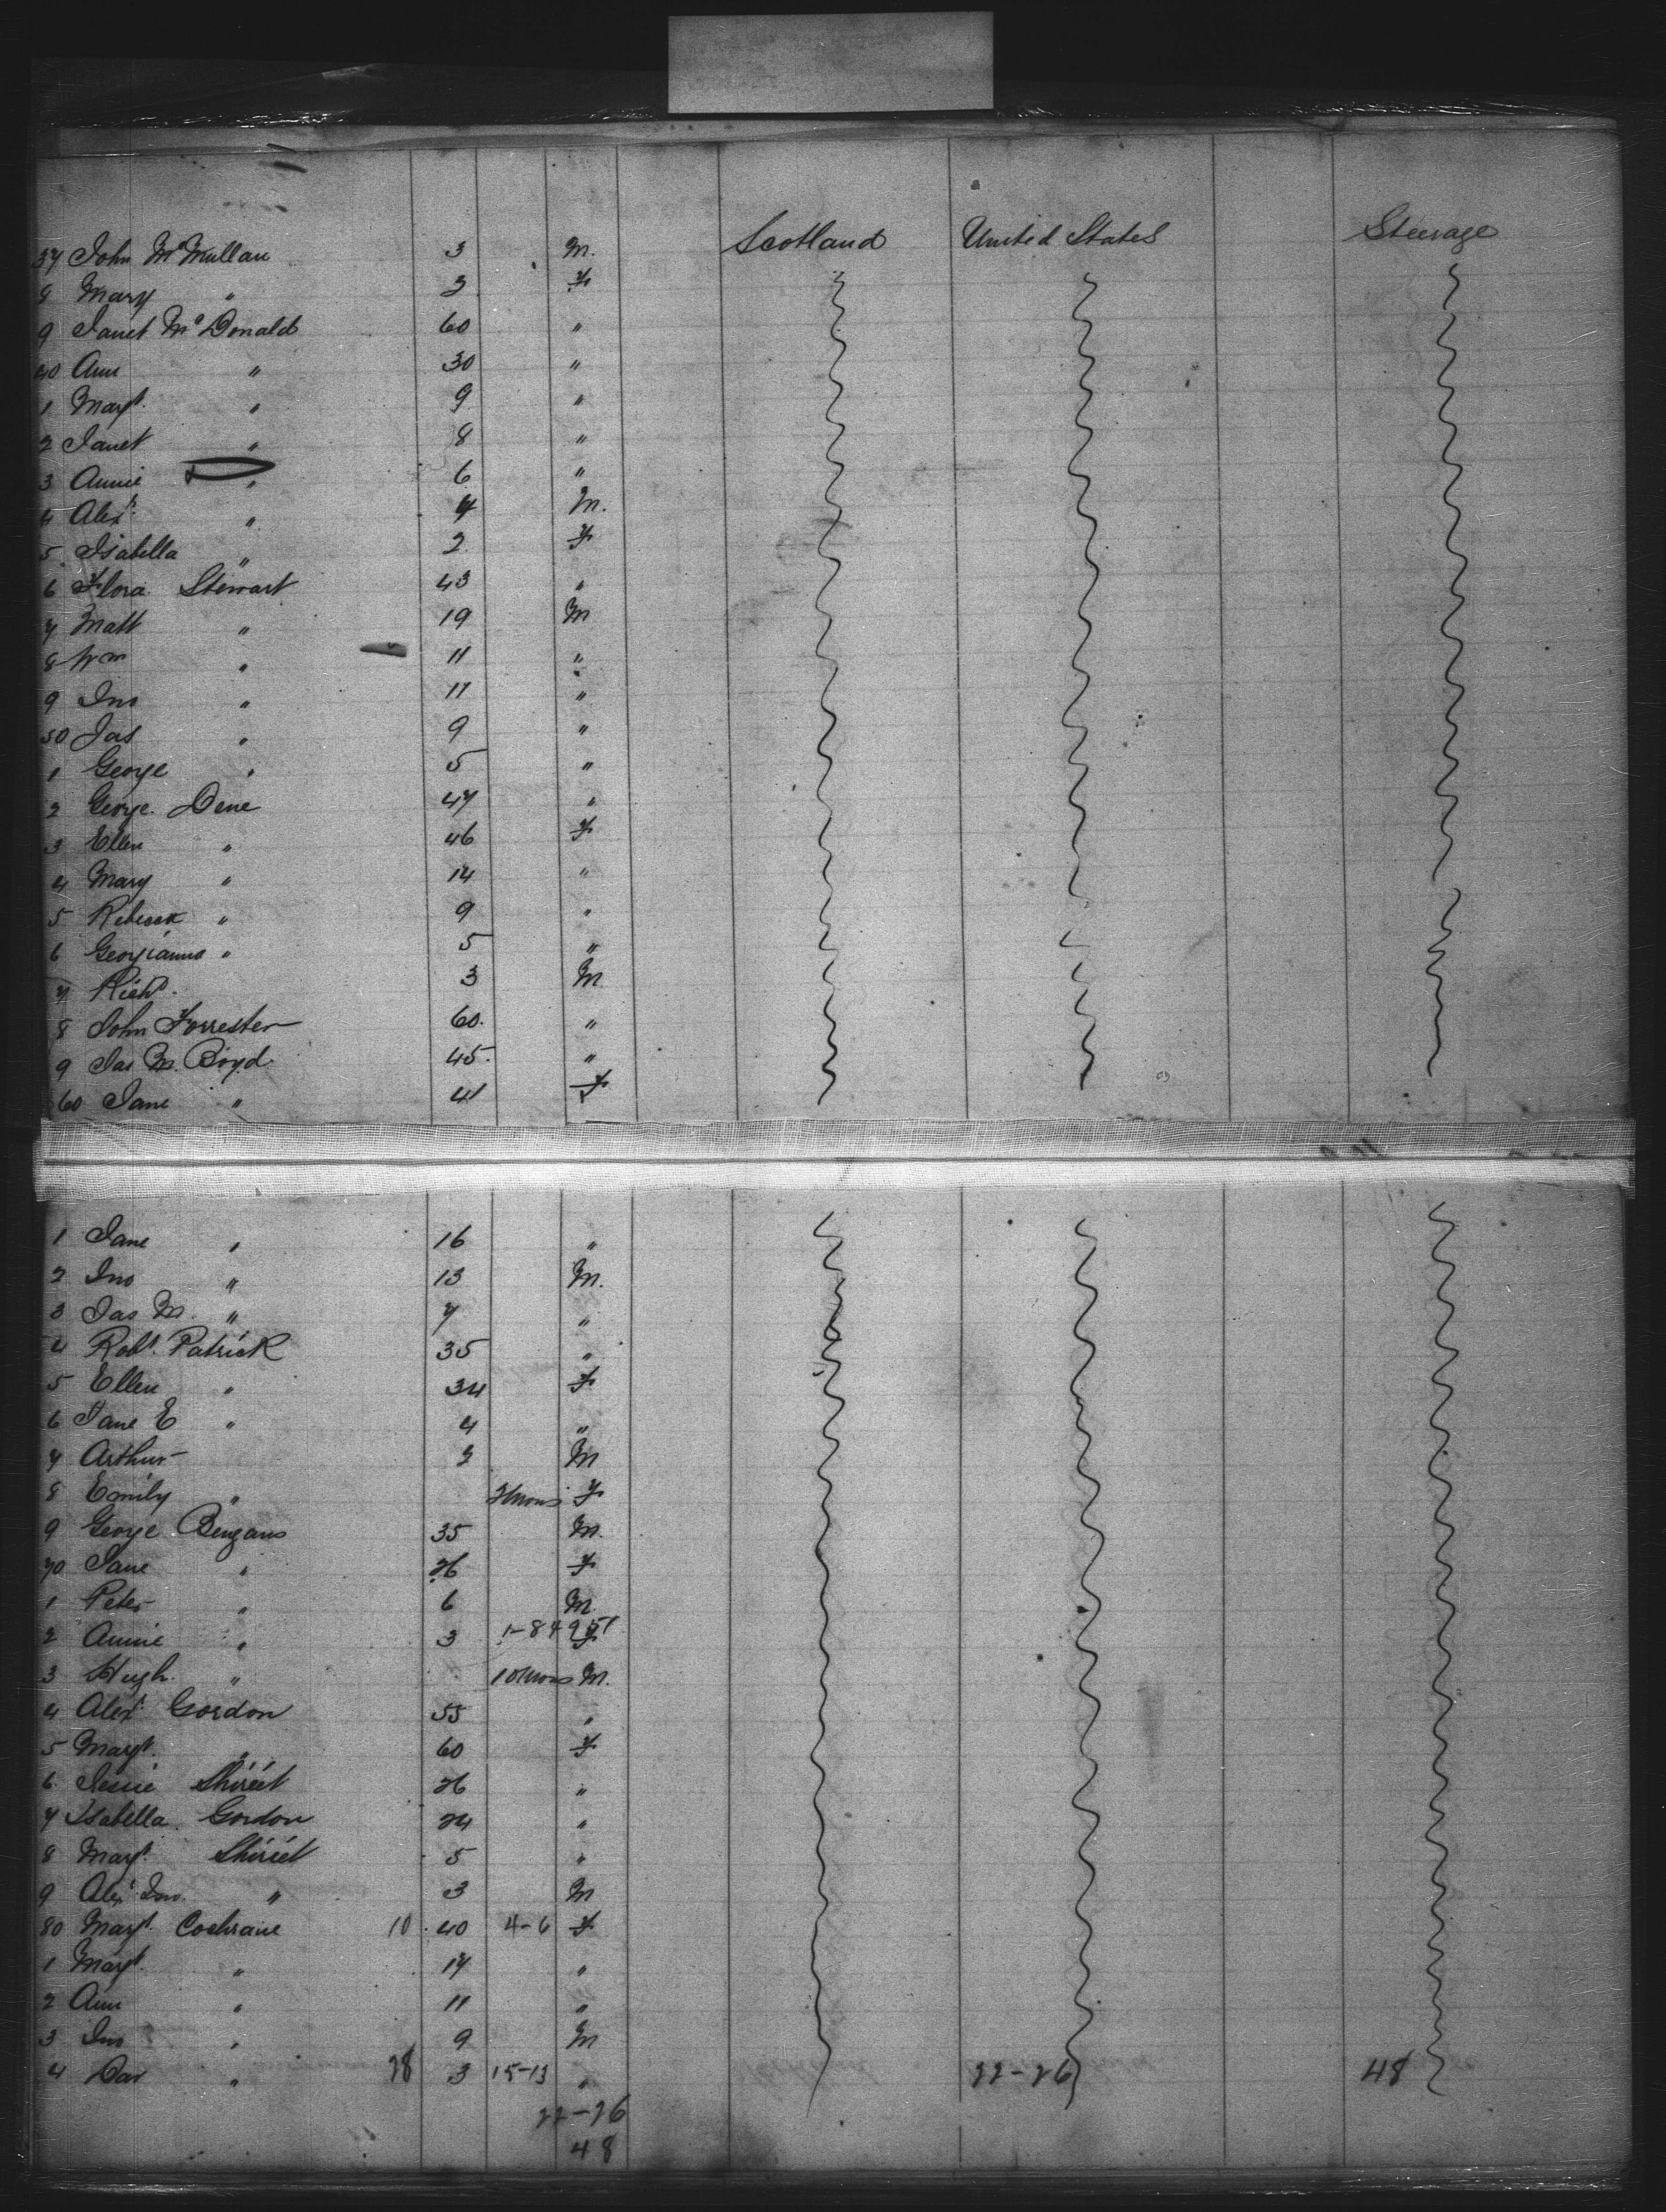 Scotland United States Steerage
37 John McMullan 3 M.
8 Mary " 3 F
9 Janet McDonald 60 "
40 Ann " 30 "
1 Margt. " 9 "
2 Janet " 8 "
3 Annie " 6 "
4 Alexr. " 4 M.
5 Isabella " 2 F
6 Flora Stewart 43 "
7 Matt " 19 M
8 Wm " 11 "
9 Jno " 11 "
50 Jas " 9 "
1 George " 5 "
2 George. Dene 47 "
3 Ellen " 46 F
4 Mary " 14 "
5 Rebecca " 9 "
6 Georgianna " 5 "
7 Richd. 3 M
8 John Forrester 60. "
9 Jas M. Boyd 45. "
60 Jane " 41 F
1 Jane " 16 "
2 Jno " 13 M.
3 Jas M. " 7 "
4 Robt. Patrick 35 "
5 Ellen " 34 F
6 Jane E " 4 "
7 Arthur 3 M
8 Emily " mons F
9 George 35 M.
70 Jane " 26 F
1 Peter " 6 M.
2 Annie " 3 1-84951 F
3 Hugh. " 10 mons M.
4 Alexr. Gordon 55 "
5 Margt. " 60 F
6. Jessie 26 "
7 Isabella. Gordon 24 "
8 Margt. 5 "
9 Alexr. Jno. " 3 M
80 Margt. Cochrane 10 40 4-6 F
1 Margt. " 17 "
2 Ann " 11 "
3 Jno " 9 M
4 Dav " 28 3 15-13 " 22-26 48
22-26
48